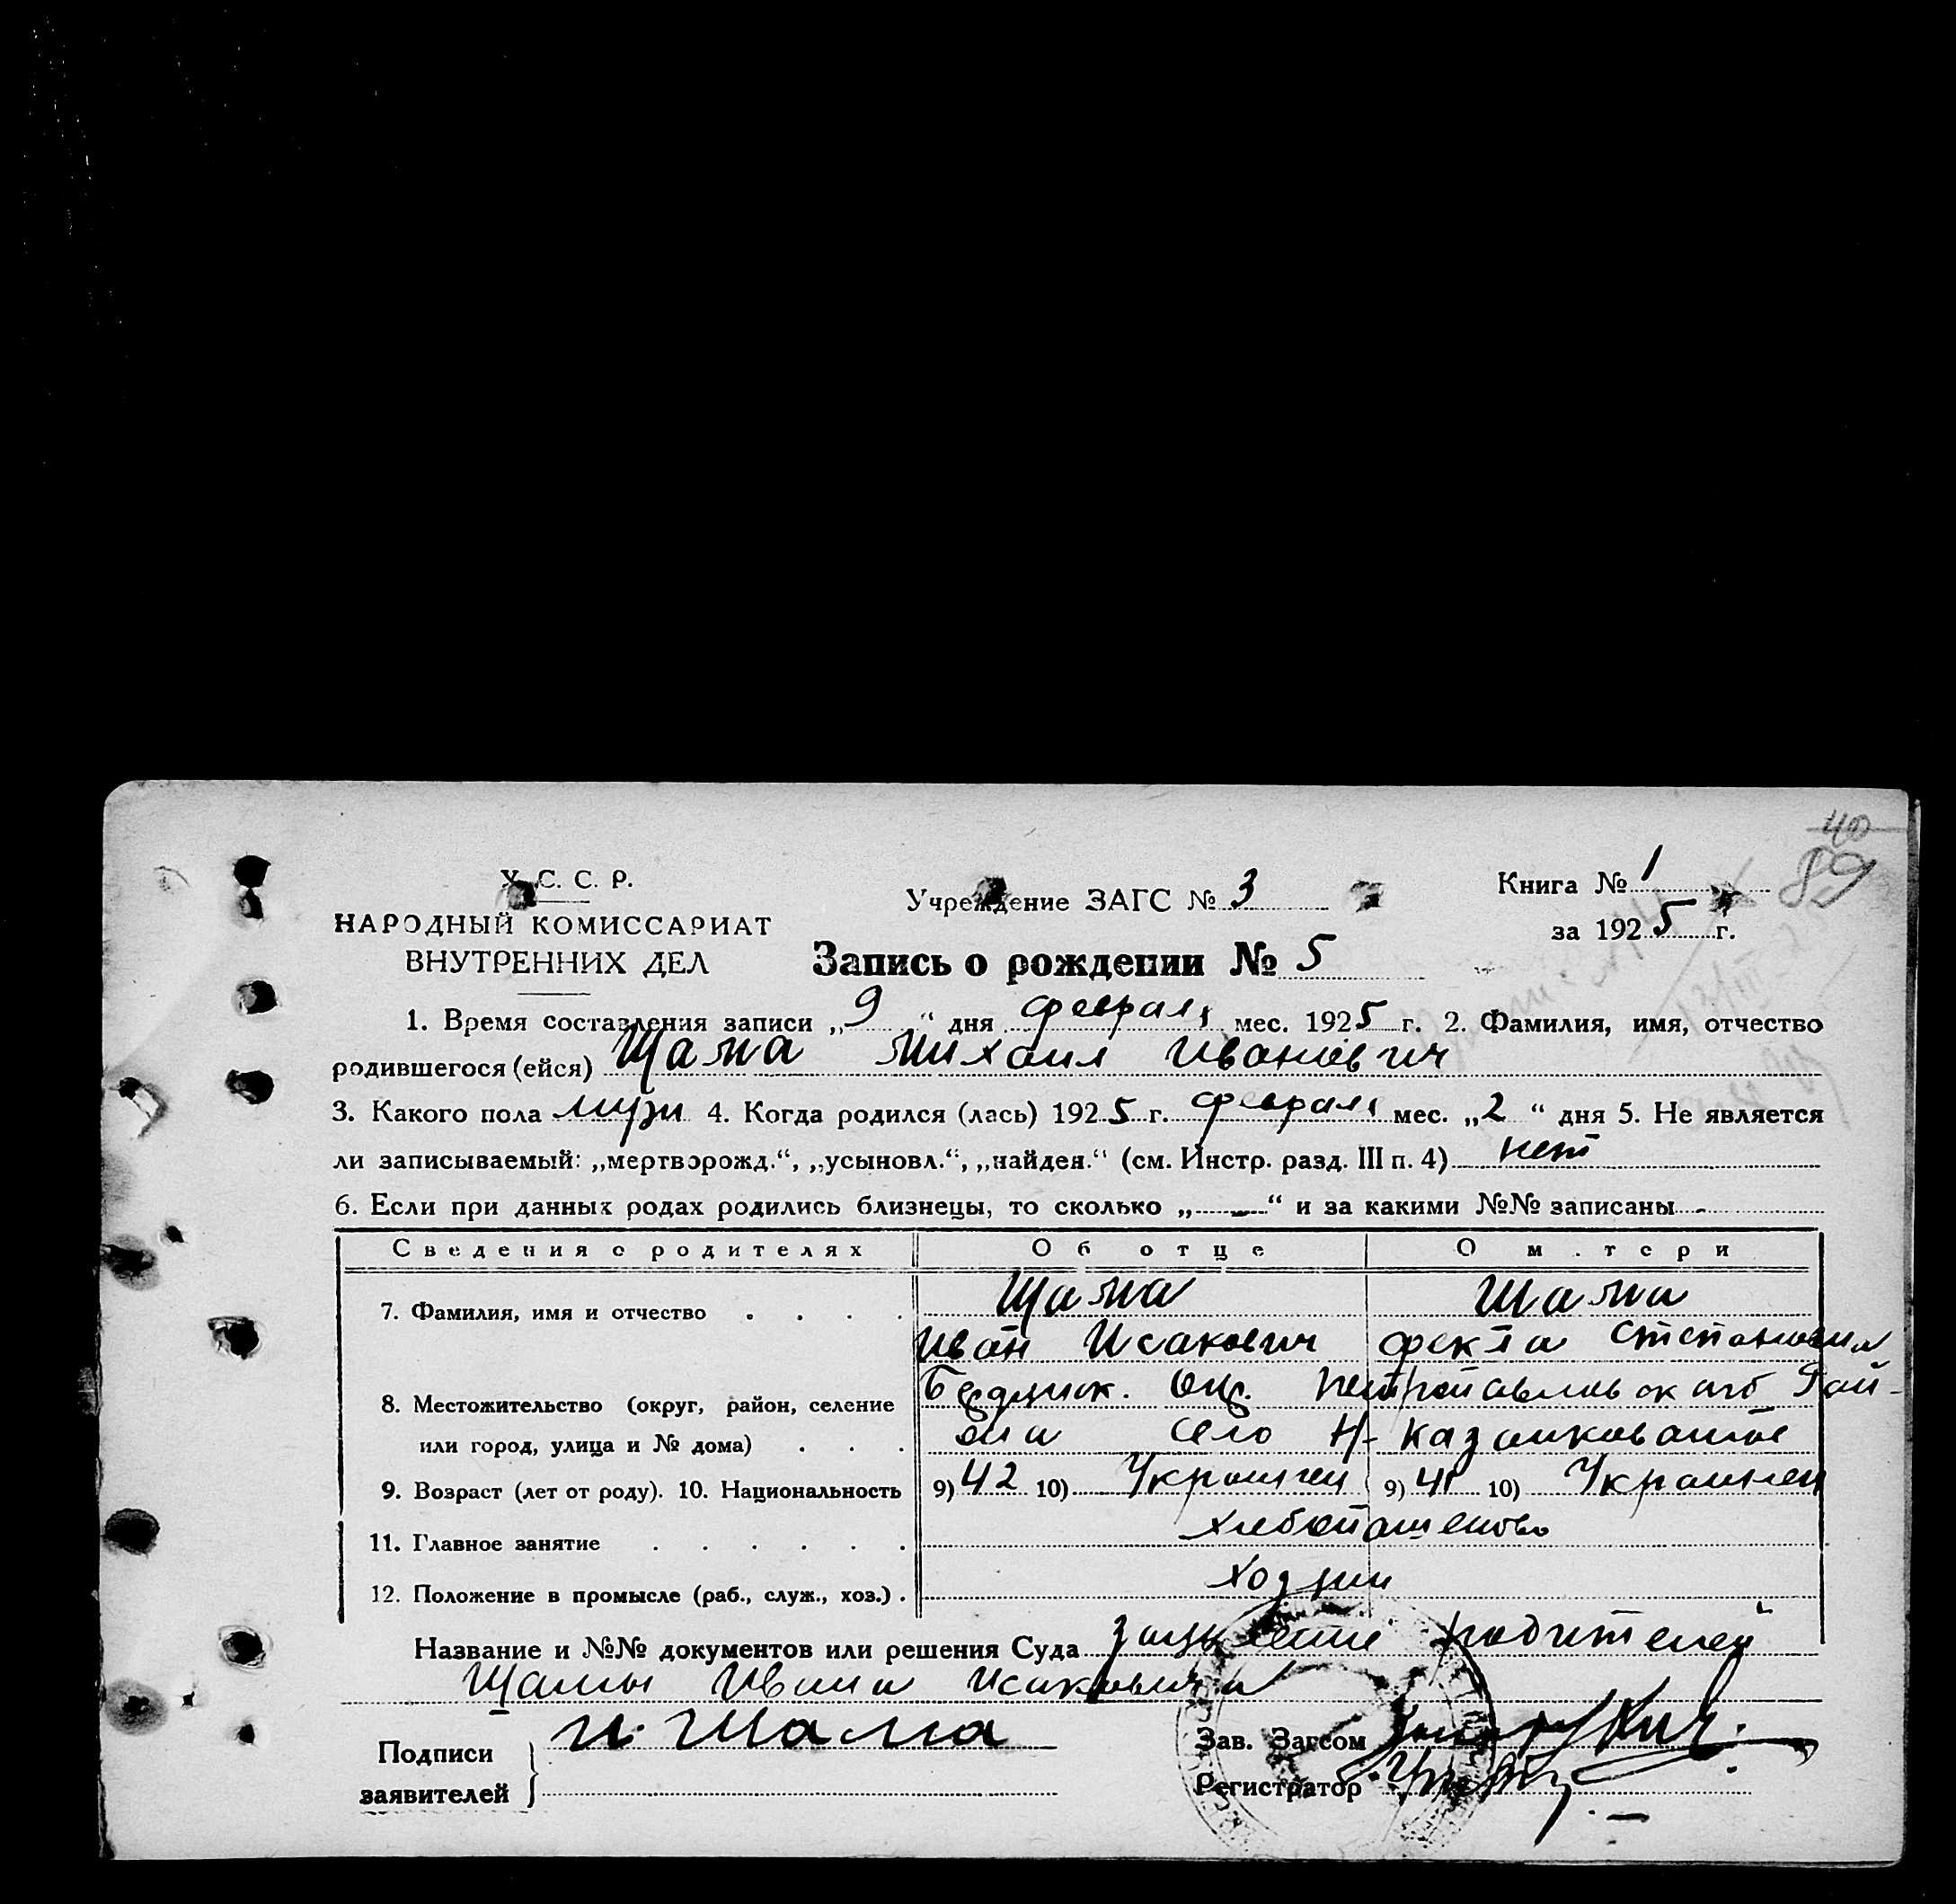 40
89
У. С. С. Р.
НАРОДНЫЙ КОМИССАРИАТ
ВНУТРЕННИХ ДЕЛ
Учреждение ЗАГС № 3
Книга № 1
за 1925 г.
Запись о рождении № 5
1. Время составления записи „9“ дня февраля мес. 1925 г. 2. Фамилия, имя, отчество
родившегося (ейся) Шама Михаил Иванович
3. Какого пола муж 4. Когда родился (лась) 1925 г. февраля мес. „2“ дня 5. Не является
ли записываемый: „мертворожд.“, „усыновл.“, „найден.“ (см. Инстр. разд. III п. 4) нет
6. Если при данных родах родились близнецы, то сколько „—“ и за какими №№ записаны -
Сведения о родителях Об отце О м.тери
7. Фамилия, имя и отчество . . . . Шама Шама
Иван Исакович Фекла
8. Местожительство (округ, район, селение
или город, улица и № дома) . . . село Н-
9. Возраст (лет от роду). 10. Национальность 9) 42 10) Украинец 9) 41 10) Украинец
11. Главное занятие . . . . . .
12. Положение в промысле (раб., служ., хоз.) . Хозяин
Название и №№ документов или решения Суда родителей
Шамы Ивана Исаковича
Подписи
заявителей
И. Шама
Зав. Загсом
Регистратор